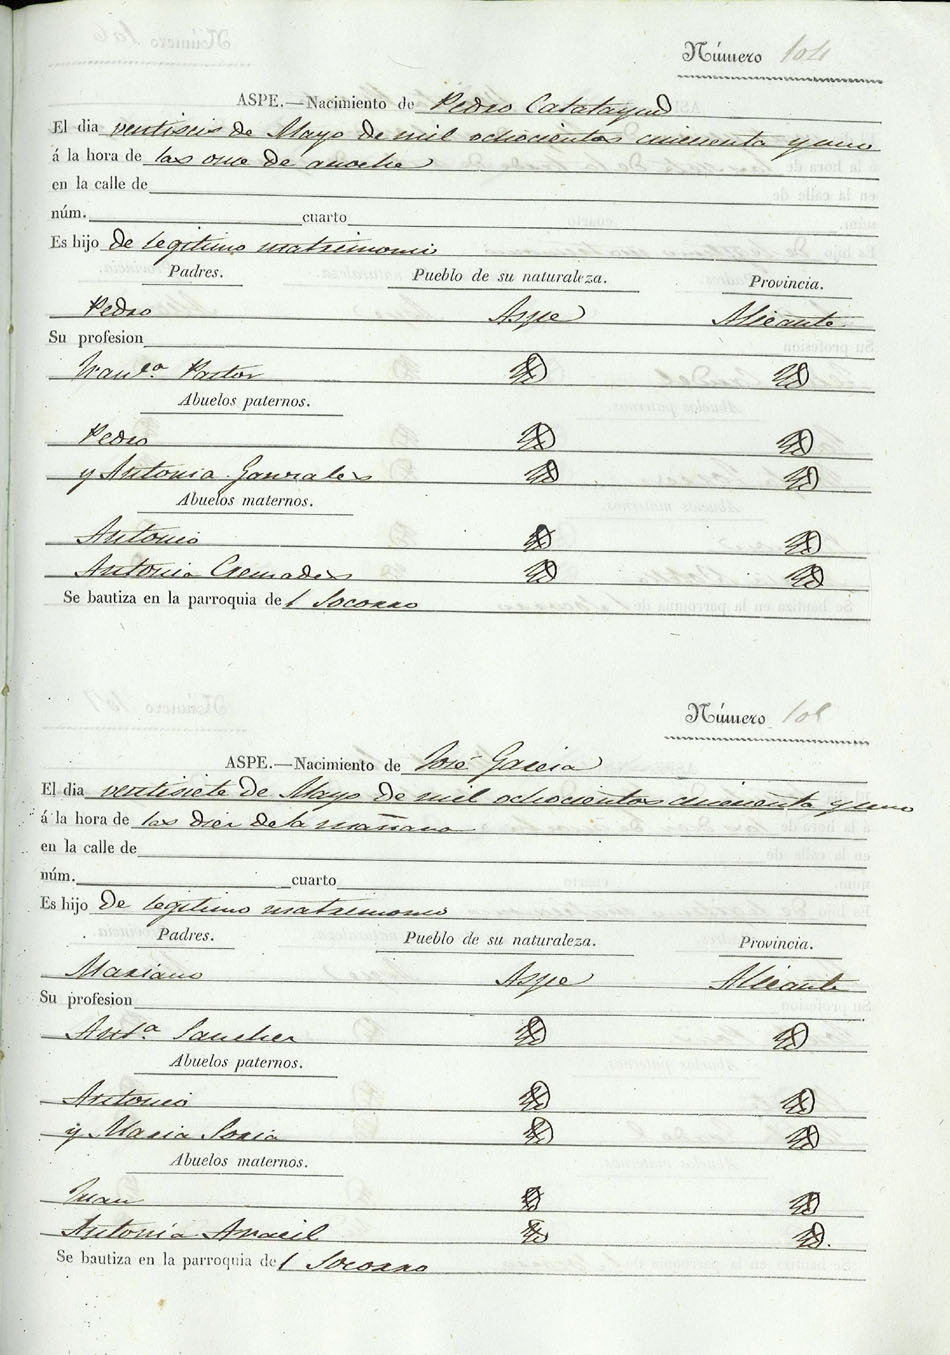 Número 104
ASPE.—Nacimiento de Pedro Calatayud
El dia ventiseis de Mayo de mil ochocientos cincuenta y uno
á la hora de las once de anoche
en la calle de
núm. cuarto
Es hijo de legitimo matrimonio
Padres. Pueblo de su naturaleza. Provincia.
Pedro Aspe Alicante
Su profesion
Fran.ca Pastor Id Id
Abuelos paternos.
Pedro Id Id
y Antonia Gonzales Id Id
Abuelos maternos.
Antonio Id Id
Antonia Cremades Id Id
Se bautiza en la parroquia del Socorro
Número 105
ASPE.—Nacimiento de José Garcia
El dia ventisiete de Mayo de mil ochocientos cincuenta y uno
á la hora de las diez de la mañana
en la calle de
núm. cuarto
Es hijo de legitimo matrimonio
Padres. Pueblo de su naturaleza. Provincia.
Mariano Aspe Alicante
Su profesion
Ant.a Sanchez Id Id
Abuelos paternos.
Antonio Id Id
y Maria Soria Id Id
Abuelos maternos.
Juan Id Id
Antonia Aracil Id Id.
Se bautiza en la parroquia del Socorro